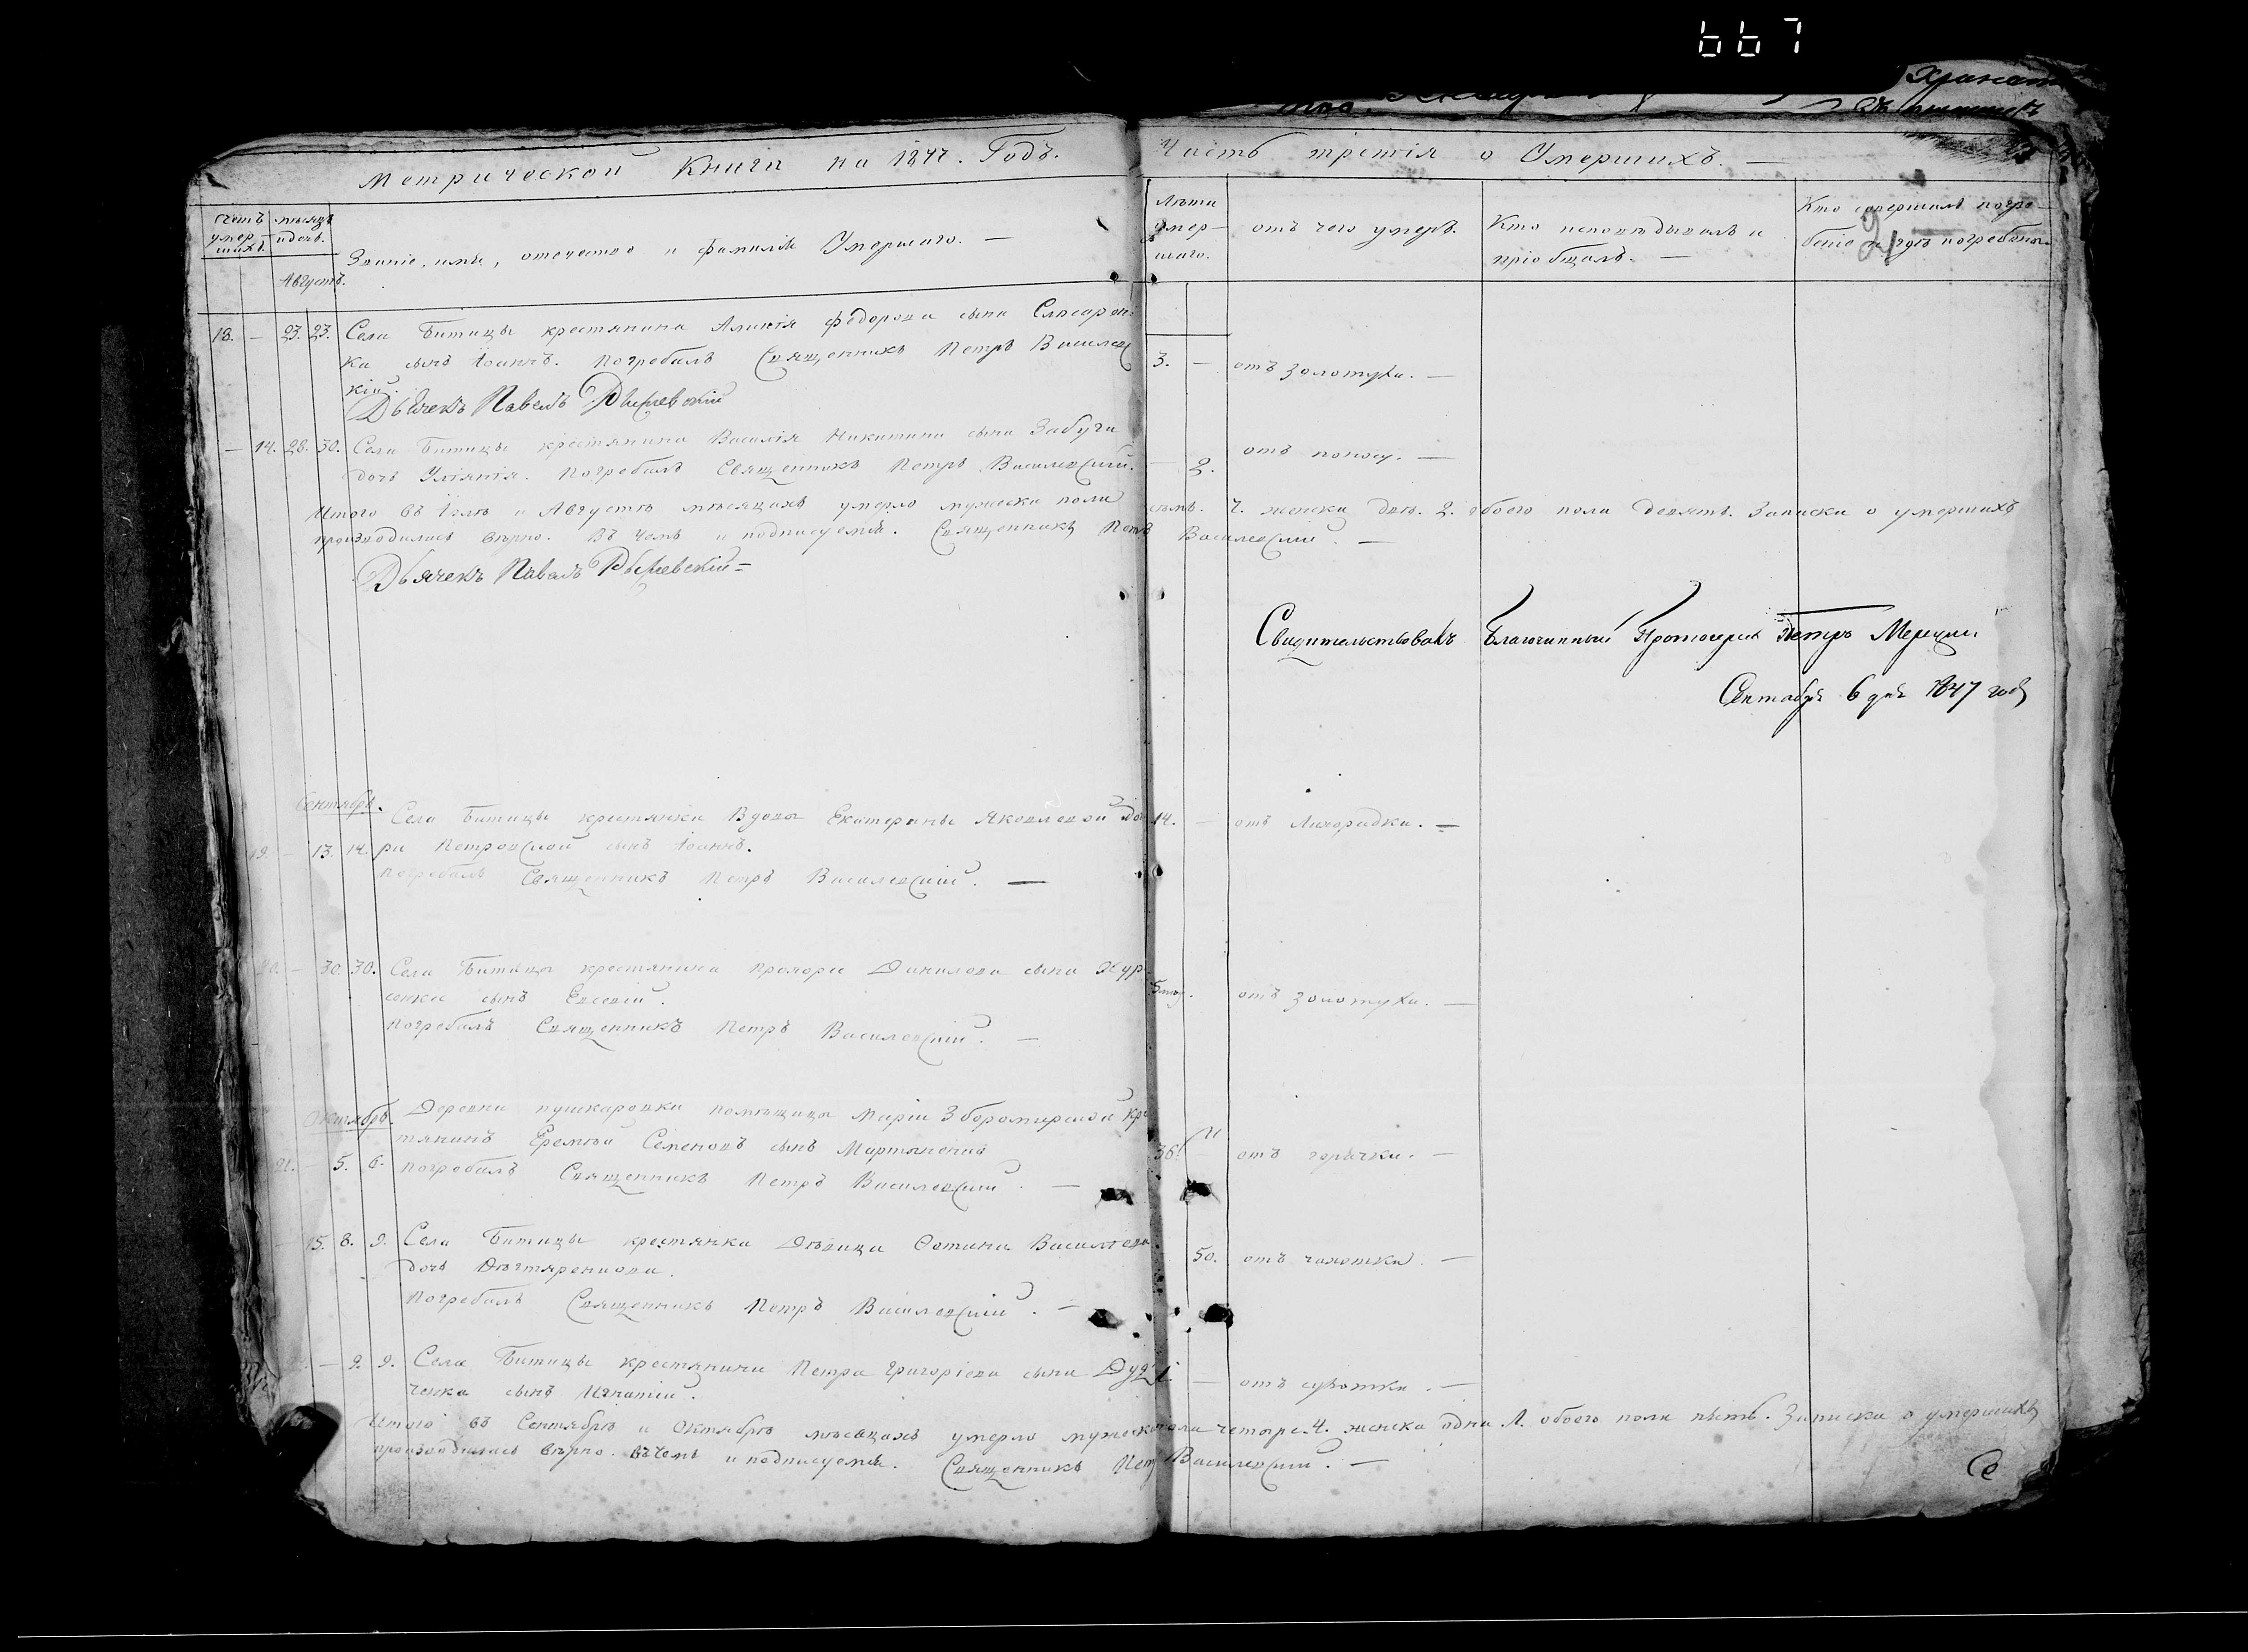 667
Метрической Книги на 1847. Годъ.
Часть третія о Умершихъ. —
счетъ умер-шихъ.
мѣсяцъ и день.
Званіе, имя, отечество и фамилія Умершаго. —
Лѣта умер-шаго.
отъ чего умеръ.
Кто исповѣдывалъ и
пріобщалъ. —
Кто совершалъ погре-
беніе и гдѣ погребены
Августъ.
18. — 23. 23. Села Битицы крестянина Федорова сына
ка сынъ Іоаннъ. Погребалъ Священникъ Петръ Василевс
кій.
3. — отъ золотухи. —
Дьячекъ Павелъ
— 14. 28. 30. Села Битицы крестянина Василія Никитина сына Забуги
дочь Уліянія. Погребалъ Священникъ Петръ Василевскій.
— 2. отъ поносу. —
Итого въ Іюлѣ и Августѣ мѣсяцахъ умерло мужеска пола семъ. 7. женска двѣ. 2. обоего пола девять. Записки о умершихъ
производились вѣрно. Въ чемъ и подписуемся. Священникъ Петръ Василевскій. —
Дьячекъ Павелъ
Свидительствовалъ Благочинный Протоерей Петръ
Сентября 6 дня 1847 года
Сентябрь.
Села Битицы крестянки Вдовы Екатерины Яковлевой
19. — 13. 14. ри Петровской сынъ Іоаннъ.
Погребалъ Священникъ Петръ Василевскій. —
14. — отъ Лихорадки. —
20. — 30. 30. Села Битицы крестянина Прохора Данилова сына
сенка сынъ Евсевій.
Погребалъ Священникъ Петръ Василевскій. —
5 отъ золотухи. —
Октябрь.
Деревни пушкаровки помѣщицы Маріи Зборомирской кре
тянинъ Еремѣй Семеновъ сынъ
21. — 5. 6. Погребалъ Священникъ Петръ Василевскій. —
36. — отъ горячки. —
— 15. 8. 9. Села Битицы крестянка Дѣвица Василіева
дочь
Погребалъ Священникъ Петръ Василевскій. —
50. отъ чахотки. —
— 9. 9. Села Битицы крестянина Петра Григоріева сына
ченка сынъ Игнатій.
1. — отъ сухотки. —
Итого въ Сентябрѣ и Октябрѣ мѣсяцахъ умерло мужеска пола четыре. 4. женска одна 1. обоего пола пять. Записки о умершихъ
производились вѣрно. въ чемъ и подписуемся. Священникъ Петръ Василевскій. —